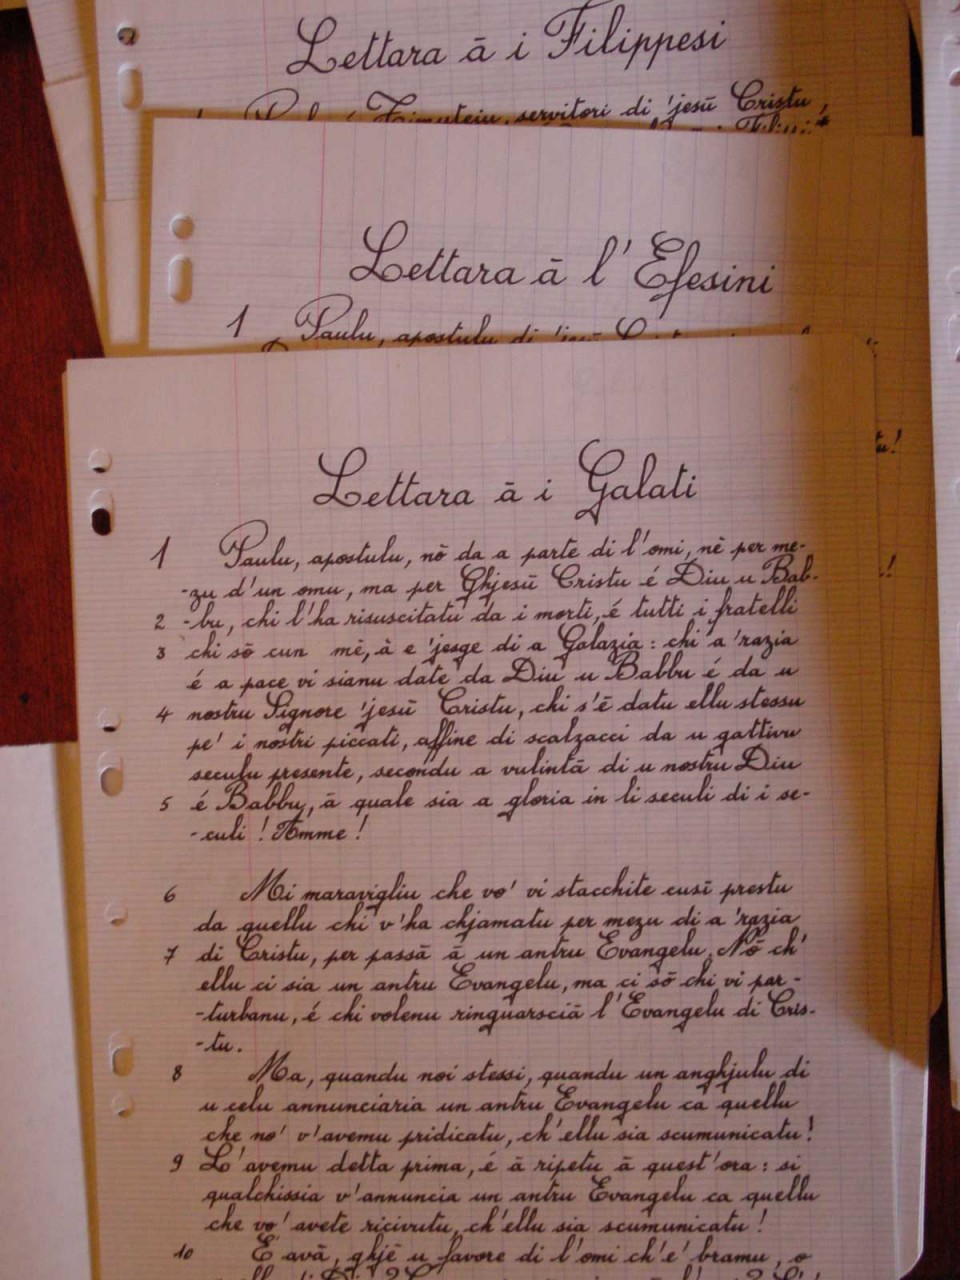 Lettara ā i Filippesi
servitori di 'jesū Cristu,
Lettara ā l'Efesini
1 Paulu, apostulu di 'jesū
Lettara ā i Galati
1 Paulu, apostulu, nō da a parte di l'omi, nē per me-
-zu d'un omu, ma per Ghjesū Cristu é Diu u Bab-
2 -bu, chi l'ha risuscitatu da i morti, é tutti i fratelli
3 chi sō cun mē, à e 'jesge di a Galazia: chi a 'razia
é a pace vi sianu date da Diu u Babbu é da u
4 nostru Signore 'jesū Cristu, chi s'ē datu ellu stessu
pe' i nostri piccati, affine di scalzacci da u gattivu
seculu presente, secondu a vulintā di u nostru Diu
5 é Babbu, ā quale sia a gloria in li seculi di i se-
-culi! Amme!
6 Mi maravigliu che vo' vi stacchite cusī prestu
da quellu chi v'ha chjamatu per mezu di a 'razia
7 di Cristu, per passā ā un antru Evangelu. Nō ch'
ellu ci sia un antru Evangelu, ma ci sō chi vi par-
-turbanu, é chi volenu ringuarsciā l'Evangelu di Cris-
-tu.
8 Ma, quandu noi stessi, quandu un anghjulu di
u celu annunciaria un antru Evangelu ca quellu
che no' v'avemu pridicatu, ch'ellu sia scumunicatu!
9 L'avemu detta prima, é ā ripetu ā quest'ora: si
qualchissia v'annuncia un antru Evangelu ca quellu
che vo' avete ricivutu, ch'ellu sia scumunicatu!
10 E avā, ghjē u favore di l'omi ch'e' bramu, o